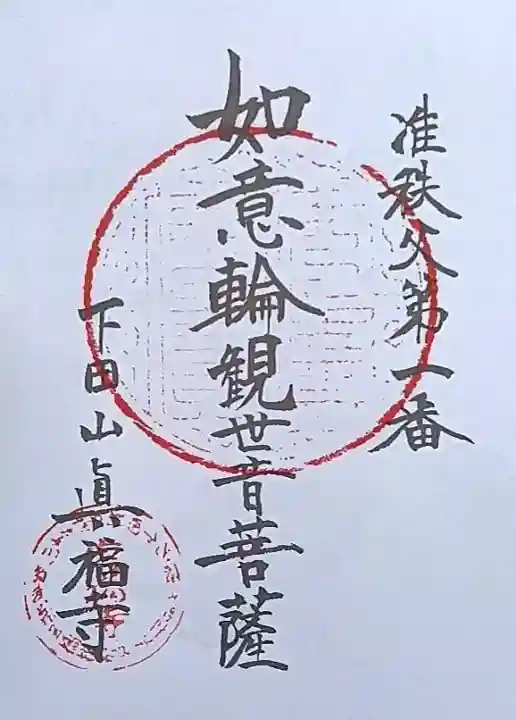 准秩父第一番
如意輪観世音菩薩
下田山
眞福寺